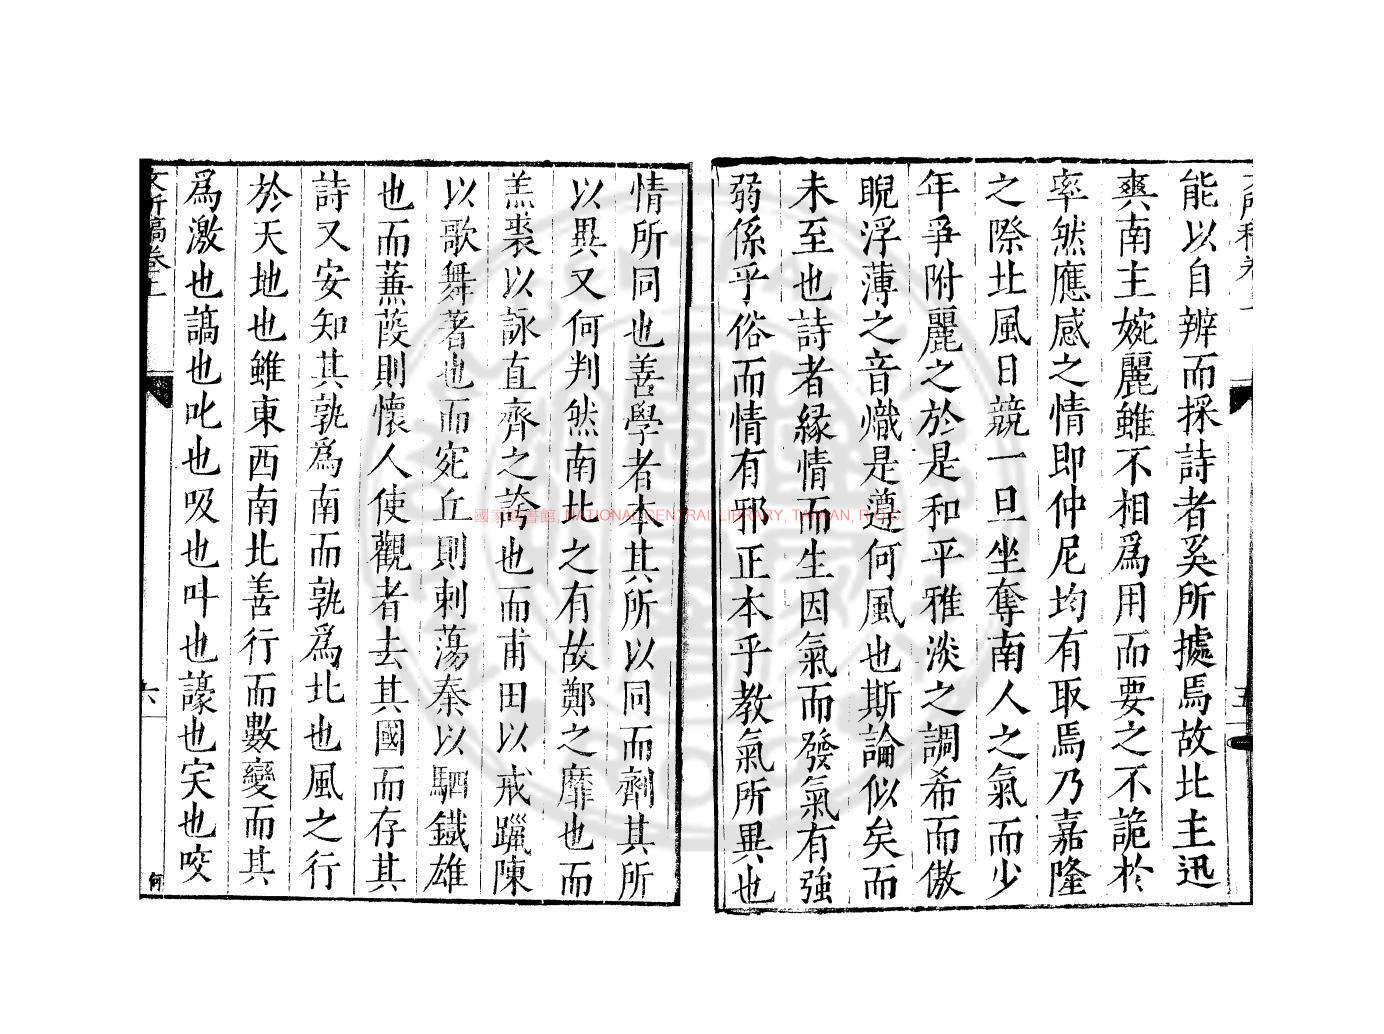 能以自辨而採詩者奚所據焉故北主迅
爽南主婉麗雖不相爲用而要之不詭於
率然應感之情即仲尼均有取焉乃嘉隆
之際北風日競一旦坐奪南人之氣而少
年爭附麗之於是和平雅淡之調希而傲
睨浮薄之音熾是遵何風也斯論似矣而
未至也詩者緣情而生因氣而發氣有強
弱係乎俗而情有邪正本乎教氣所異也
情所同也善學者本其所以同而劑其所
以異又何判然南北之有故鄭之靡也而
羔裘以詠直齊之誇也而甫田以戒躐陳
以歌舞著也而宛丘則刺蕩秦以駟鐵雄
也而蒹葭則懷人使觀者去其國而存其
詩又安知其孰爲南而孰爲北也風之行
於天地也雖東西南北善行而數變而其
爲激也謞也叱也吸也叫也譹也宎也咬
六
何
國家圖書館, NATIONAL CENTRAL LIBRARY, TAIWAN, R.O.C.